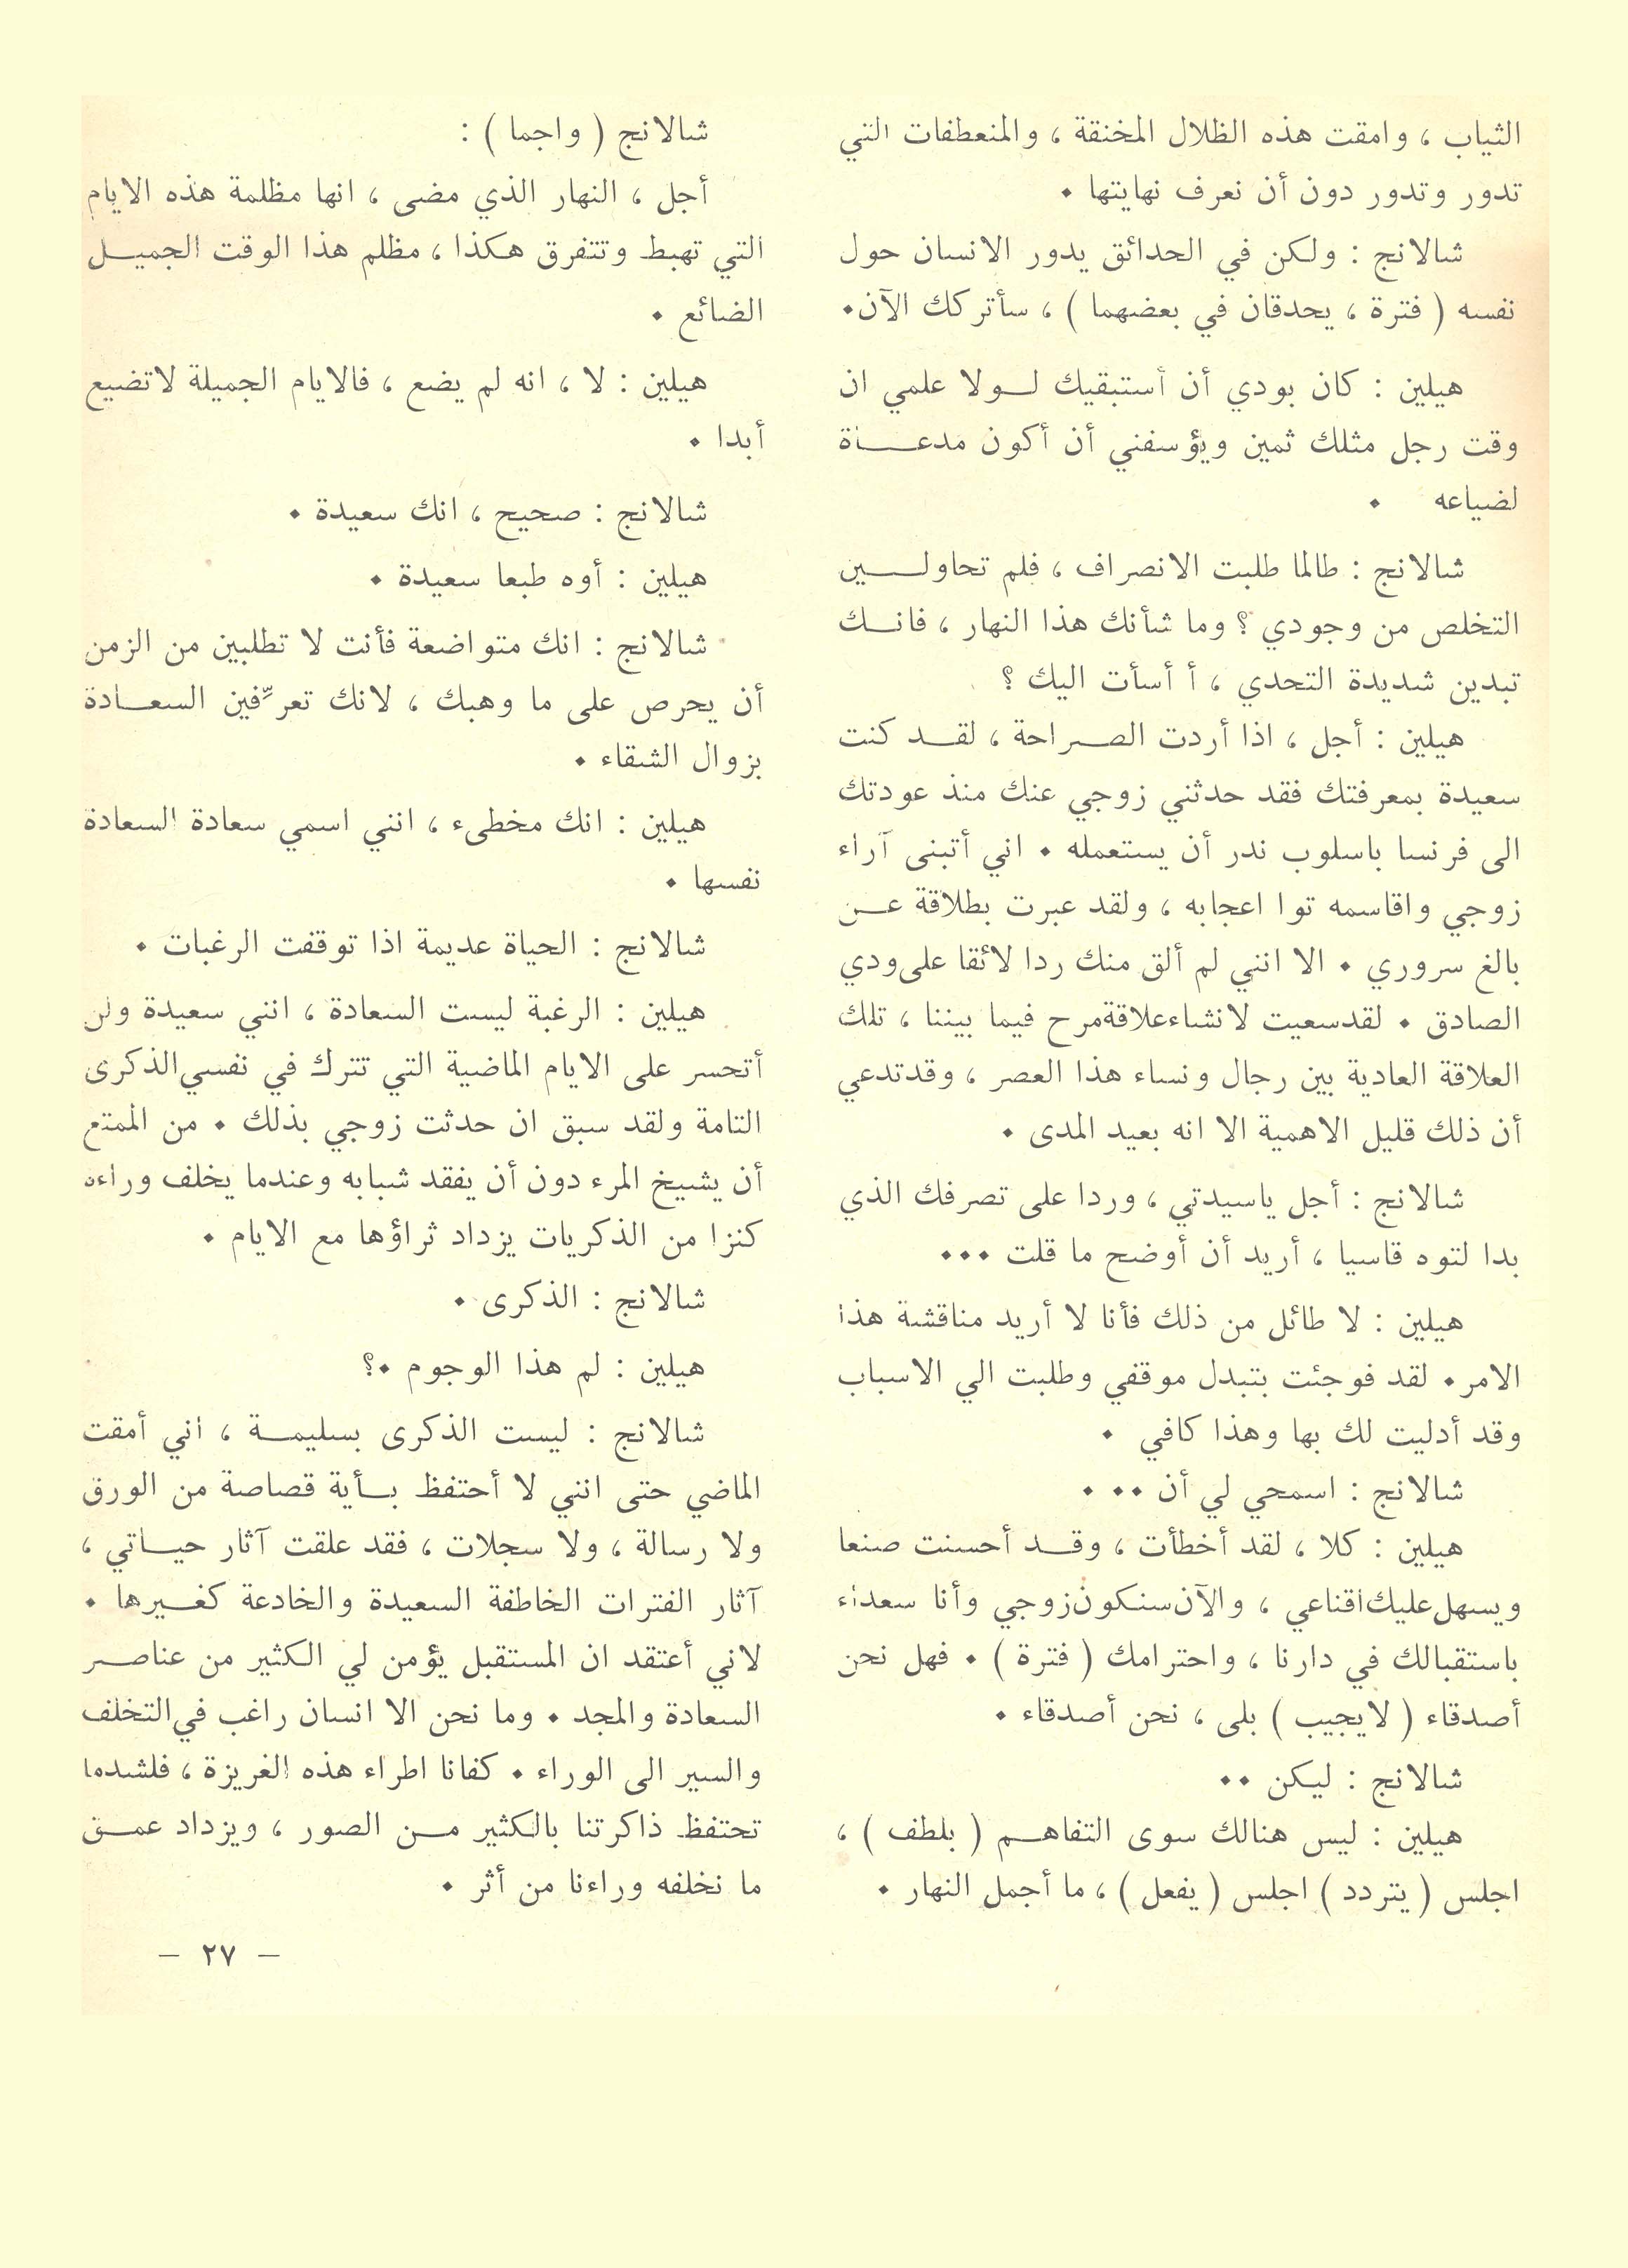 الثياب ، وامقت هذه الظلال المخنقة ، والمنعطفات التي
تدور وتدور دون أن نعرف نهايتها .
شالانج : ولكن في الحدائق يدور الانسان حول
نفسه ( فترة ، يحدقان في بعضهما ) ، سأتركك الآن .
هيلين : كان بودي أن أستبقيك لولا علمي ان
وقت رجل مثلك ثمين ويؤسفني أن أكون مدعاة
لضياعه .
شالانج : طالما طلبت الانصراف ، فلم تحاولين
التخلص من وجودي ؟ وما شأنك هذا النهار ، فانك
تبدين شديدة التحدي ، أ أسأت اليك ؟
هيلين : أجل ، اذا أردت الصراحة ، لقد كنت
سعيدة بمعرفتك فقد حدثني زوجي عنك منذ عودتك
الى فرنسا باسلوب ندر أن يستعمله . اني أتبنى آراء
زوجي واقاسمه توا اعجابه ، ولقد عبرت بطلاقة عن
بالغ سروري . الا انني لم ألق منك ردا لائقا على ودي
الصادق . لقد سعيت لانشاء علاقة مرح فيما بيننا ، تلك
العلاقة العادية بين رجال ونساء هذا العصر ، وقد تدعي
أن ذلك قليل الاهمية الا انه بعيد المدى .
شالانج : أجل ياسيدتي ، وردا على تصرفك الذي
بدا لتوه قاسيا ، أريد أن أوضح ما قلت ...
هيلين : لا طائل من ذلك فأنا لا أريد مناقشة هذا
الامر . لقد فوجئت بتبدل موقفي وطلبت الي الاسباب
وقد أدليت لك بها وهذا كافي .
شالانج : اسمحي لي أن ...
هيلين : كلا ، لقد أخطأت ، وقد أحسنت صنعا
ويسهل عليك اقناعي ، والآن سنكون زوجي وأنا سعداء
باستقبالك في دارنا ، واحترامك ( فترة ) . فهل نحن
أصدقاء ( لايجيب ) بلى ، نحن أصدقاء .
شالانج : ليكن ..
هيلين : ليس هنالك سوى التفاهم ( بلطف ) ،
اجلس ( يتردد ) اجلس ( يفعل ) ، ما أجمل النهار .
شالانج ( واجما ) :
أجل ، النهار الذي مضى ، انها مظلمة هذه الايام
التي تهبط وتتفرق هكذا ، مظلم هذا الوقت الجميل
الضائع .
هيلين : لا ، انه لم يضع ، فالايام الجميلة لاتضيع
أبدا .
شالانج : صحيح ، انك سعيدة .
هيلين : أوه طبعا سعيدة .
شالانج : انك متواضعة فأنت لا تطلبين من الزمن
أن يحرص على ما وهبك ، لانك تعرّفين السعادة
بزوال الشقاء .
هيلين : انك مخطىء ، انني اسمي سعادة السعادة
نفسها .
شالانج : الحياة عديمة اذا توقفت الرغبات .
هيلين : الرغبة ليست السعادة ، انني سعيدة ولن
أتحسر على الايام الماضية التي تترك في نفسي الذكرى
التامة ولقد سبق ان حدثت زوجي بذلك . من الممتع
أن يشيخ المرء دون أن يفقد شبابه وعندما يخلف وراءه
كنزا من الذكريات يزداد ثراؤها مع الايام .
شالانج : الذكرى .
هيلين : لم هذا الوجوم .؟
شالانج : ليست الذكرى بسليمة ، اني أمقت
الماضي حتى انني لا أحتفظ بأية قصاصة من الورق
ولا رسالة ، ولا سجلات ، فقد علقت آثار حياتي ،
آثار الفترات الخاطفة السعيدة والخادعة كغيرها .
لاني أعتقد ان المستقبل يؤمن لي الكثير من عناصر
السعادة والمجد . وما نحن الا انسان راغب في التخلف
والسير الى الوراء . كفانا اطراء هذه الغريزة ، فلشدما
تحتفظ ذاكرتنا بالكثير من الصور ، ويزداد عمق
ما نخلفه وراءنا من أثر .
– ٢٧ –